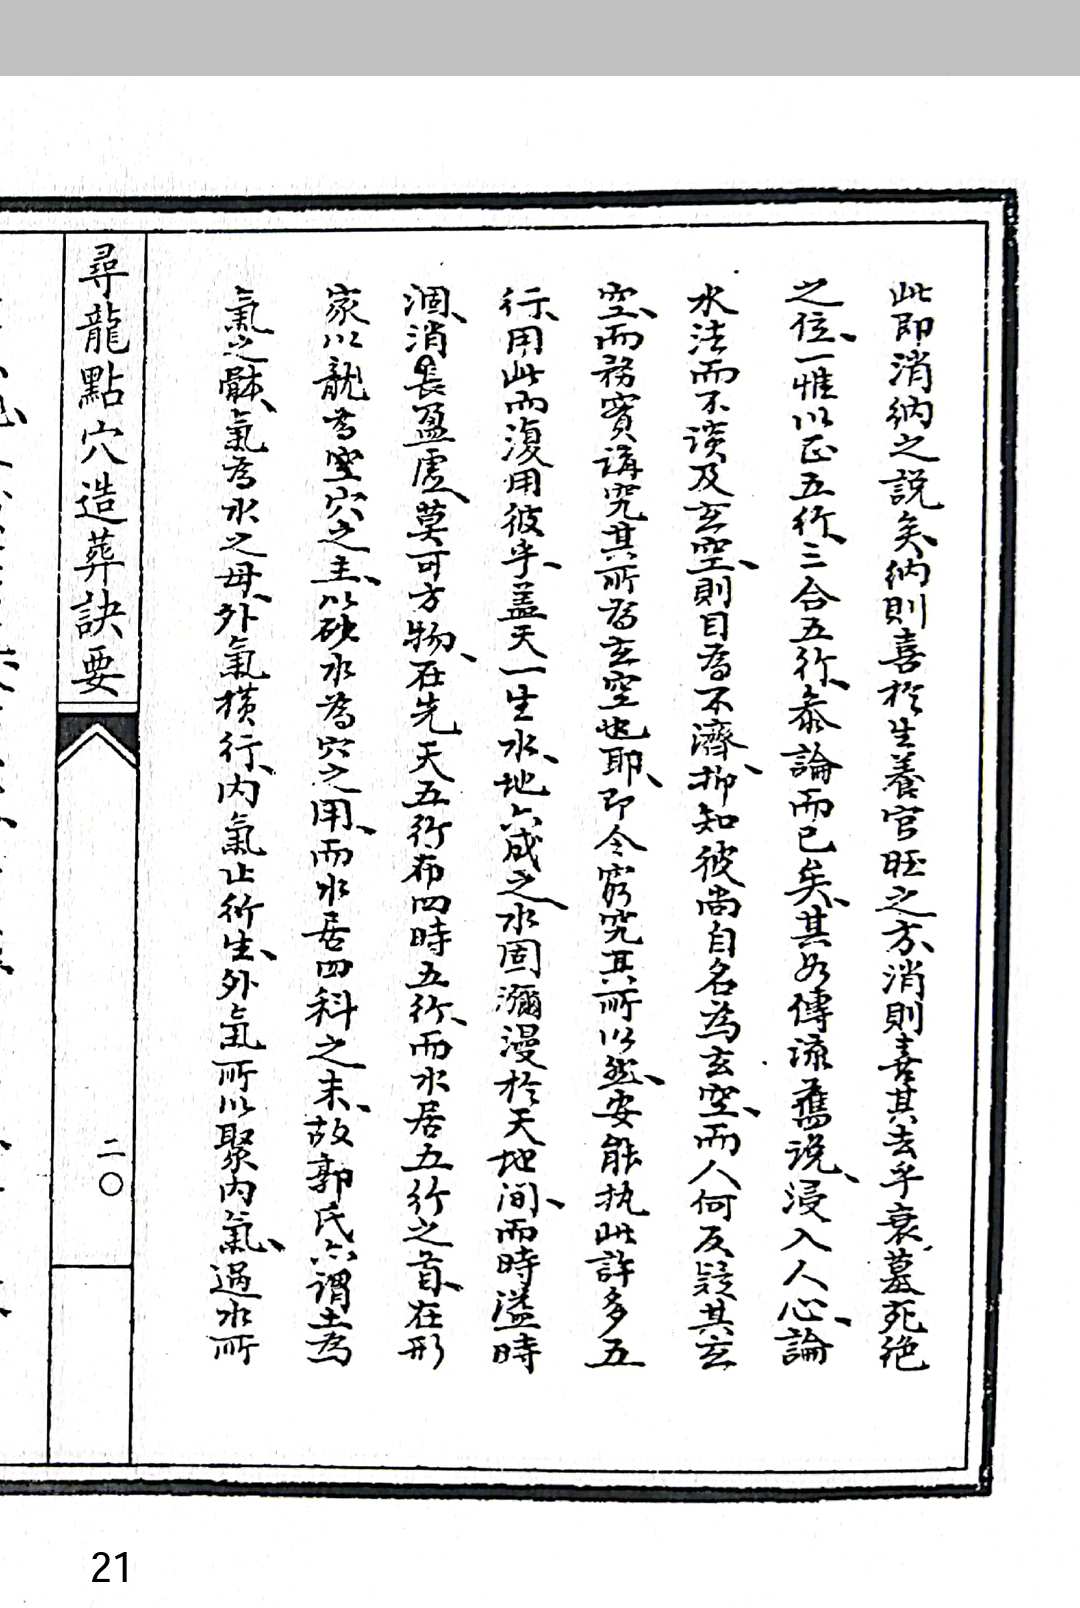 此即消納之説矣、納則喜於生養官旺之方、消則喜其去乎衰墓死絶
之位、一惟以正五行、三合五行、叅論而已矣、其如傳流舊説、浸入人心、論
水法而不談及玄空、則目為不濟、抑知彼尚自名為玄空、而人何反疑其玄
空、而務實講究其所為玄空也耶、即令窮究其所以然、安能执此許多五
行、用此而復用彼乎、盖天一生水、地六成之、水固瀰漫於天地間、而時溢時
涸、消長盈虚、莫可方物、在先天五行布四時五行、而水居五行之首、在形
家以龍為空穴之主、以砂水為穴之用、而水居四科之末、故郭氏亦謂土為
氣之骵、氣為水之母、外氣橫行、内氣止所生、外氣所以聚内氣、過水所
尋龍點穴造葬訣要
二〇
21